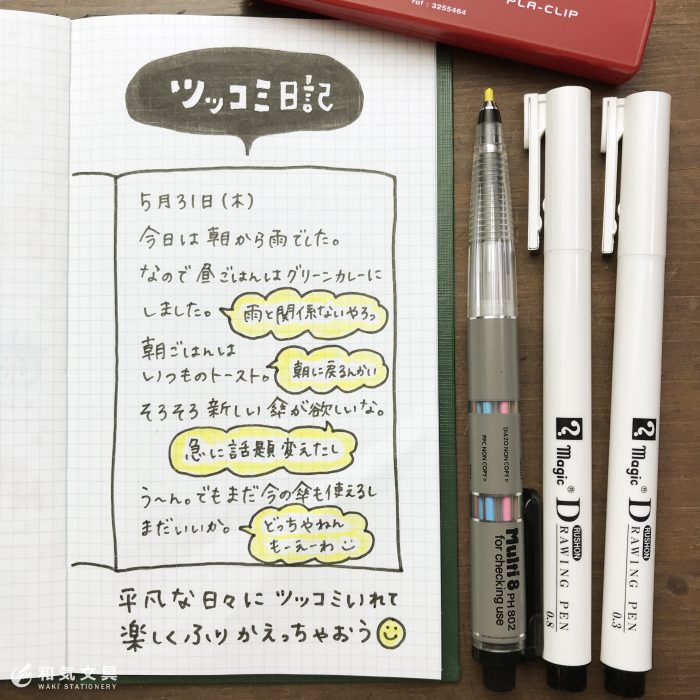 ツッコミ日記
5月31日(木)
今日は朝から雨でした。
なので昼ごはんはグリーンカレーに
しました。
雨と関係ないやろっ
朝ごはんは
いつものトースト。
朝に戻るんかい
そろそろ新しい傘が欲しいな。
急に話題変えたし
う〜ん。でもまだ今の傘も使えるし
まだいいか。
どっちやねん
もーえーわ
平凡な日々にツッコミいれて
楽しくふりかえっちゃおう
和気文具
WAKI STATIONERY
ref : 3255464
PLA-CLIP
PPC NON COPY
DIAZO NON COPY
Multi 8 PH 802
for checking use
Magic®
RUSHON
DRAWING PEN
0.8
Magic®
RUSHON
DRAWING PEN
0.3